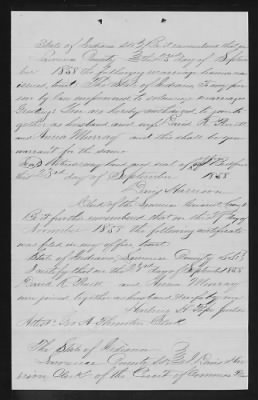 State of Indiana Be it remembered that on
County the 23rd day of Septem
ber 1858 the following marriage license was
issued, to wit: The State of Indiana, To any per
son by law empowered to solemnize marriages
Greeting: You are hereby authorized to join to
gether as husband and wife David R.
and Murray and this shall be your
warrant for the same
my hand and seal of office
this 23rd day of September 1858
Davis Harrison
Clerk of the Circuit Court
Be it further remembered that on the day
November 1858 the following certificate
was filed in my office to wit
State of Indiana County
I certify that on the 23rd day of September 1858
David R. and Murray
were joined together as husband & wife by me
Attest Geo. A. Clerk
The State of Indiana
County I Davis Har
rison Clerk of the Court of Common